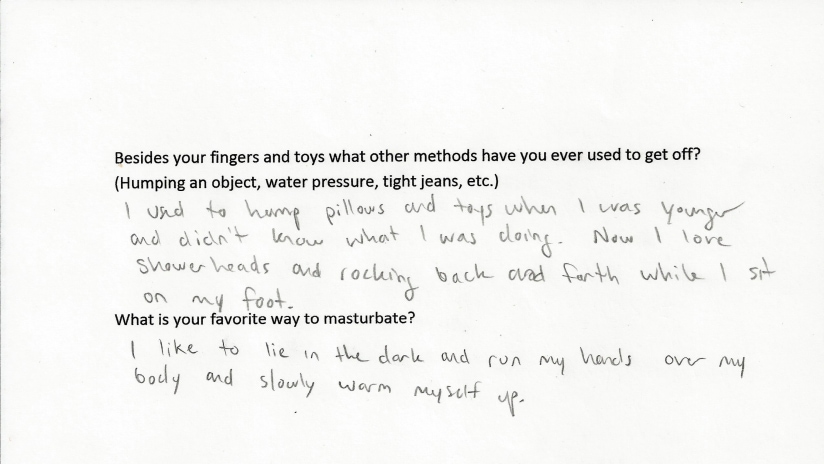 Besides your fingers and toys what other methods have you ever used to get off?
(Humping an object, water pressure, tight jeans, etc.)
I used to hump pillows and toys when I was younger
and didn't know what I was doing. Now I love
shower heads and rocking back and forth while I sit
on my foot.
What is your favorite way to masturbate?
I like to lie in the dark and run my hands over my
body and slowly warm myself up.